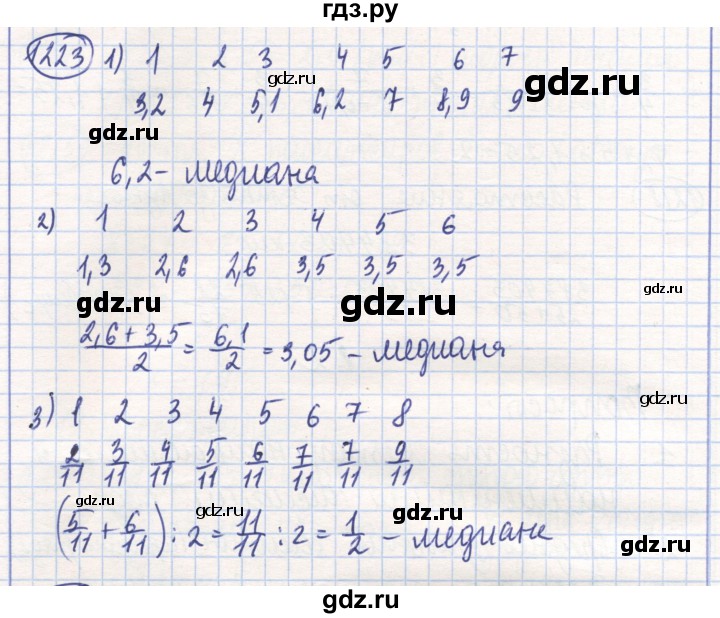 гдз.ру
1223 1) 1 2 3 4 5 6 7
gdz.ru
gdz.ru
3,2 4 5,1 6,2 7 8,9 9
gdz.ru
6,2 - медиана
2) 1 2 3 4 5 6
1,3 2,6 2,6 3,5 3,5 3,5
gdz.ru gdz.ru gdz.ru
(2,6 + 3,5)/2 = 6,1/2 = 3,05 - медианя
gdz.ru
3) 1 2 3 4 5 6 7 8
2/11 3/11 4/11 5/11 6/11 7/11 7/11 9/11
gdz.ru gdz.ru gdz.ru
(5/11 + 6/11) : 2 = 11/11 : 2 = 1/2 - медиане
gdz.ru
gdz.ru